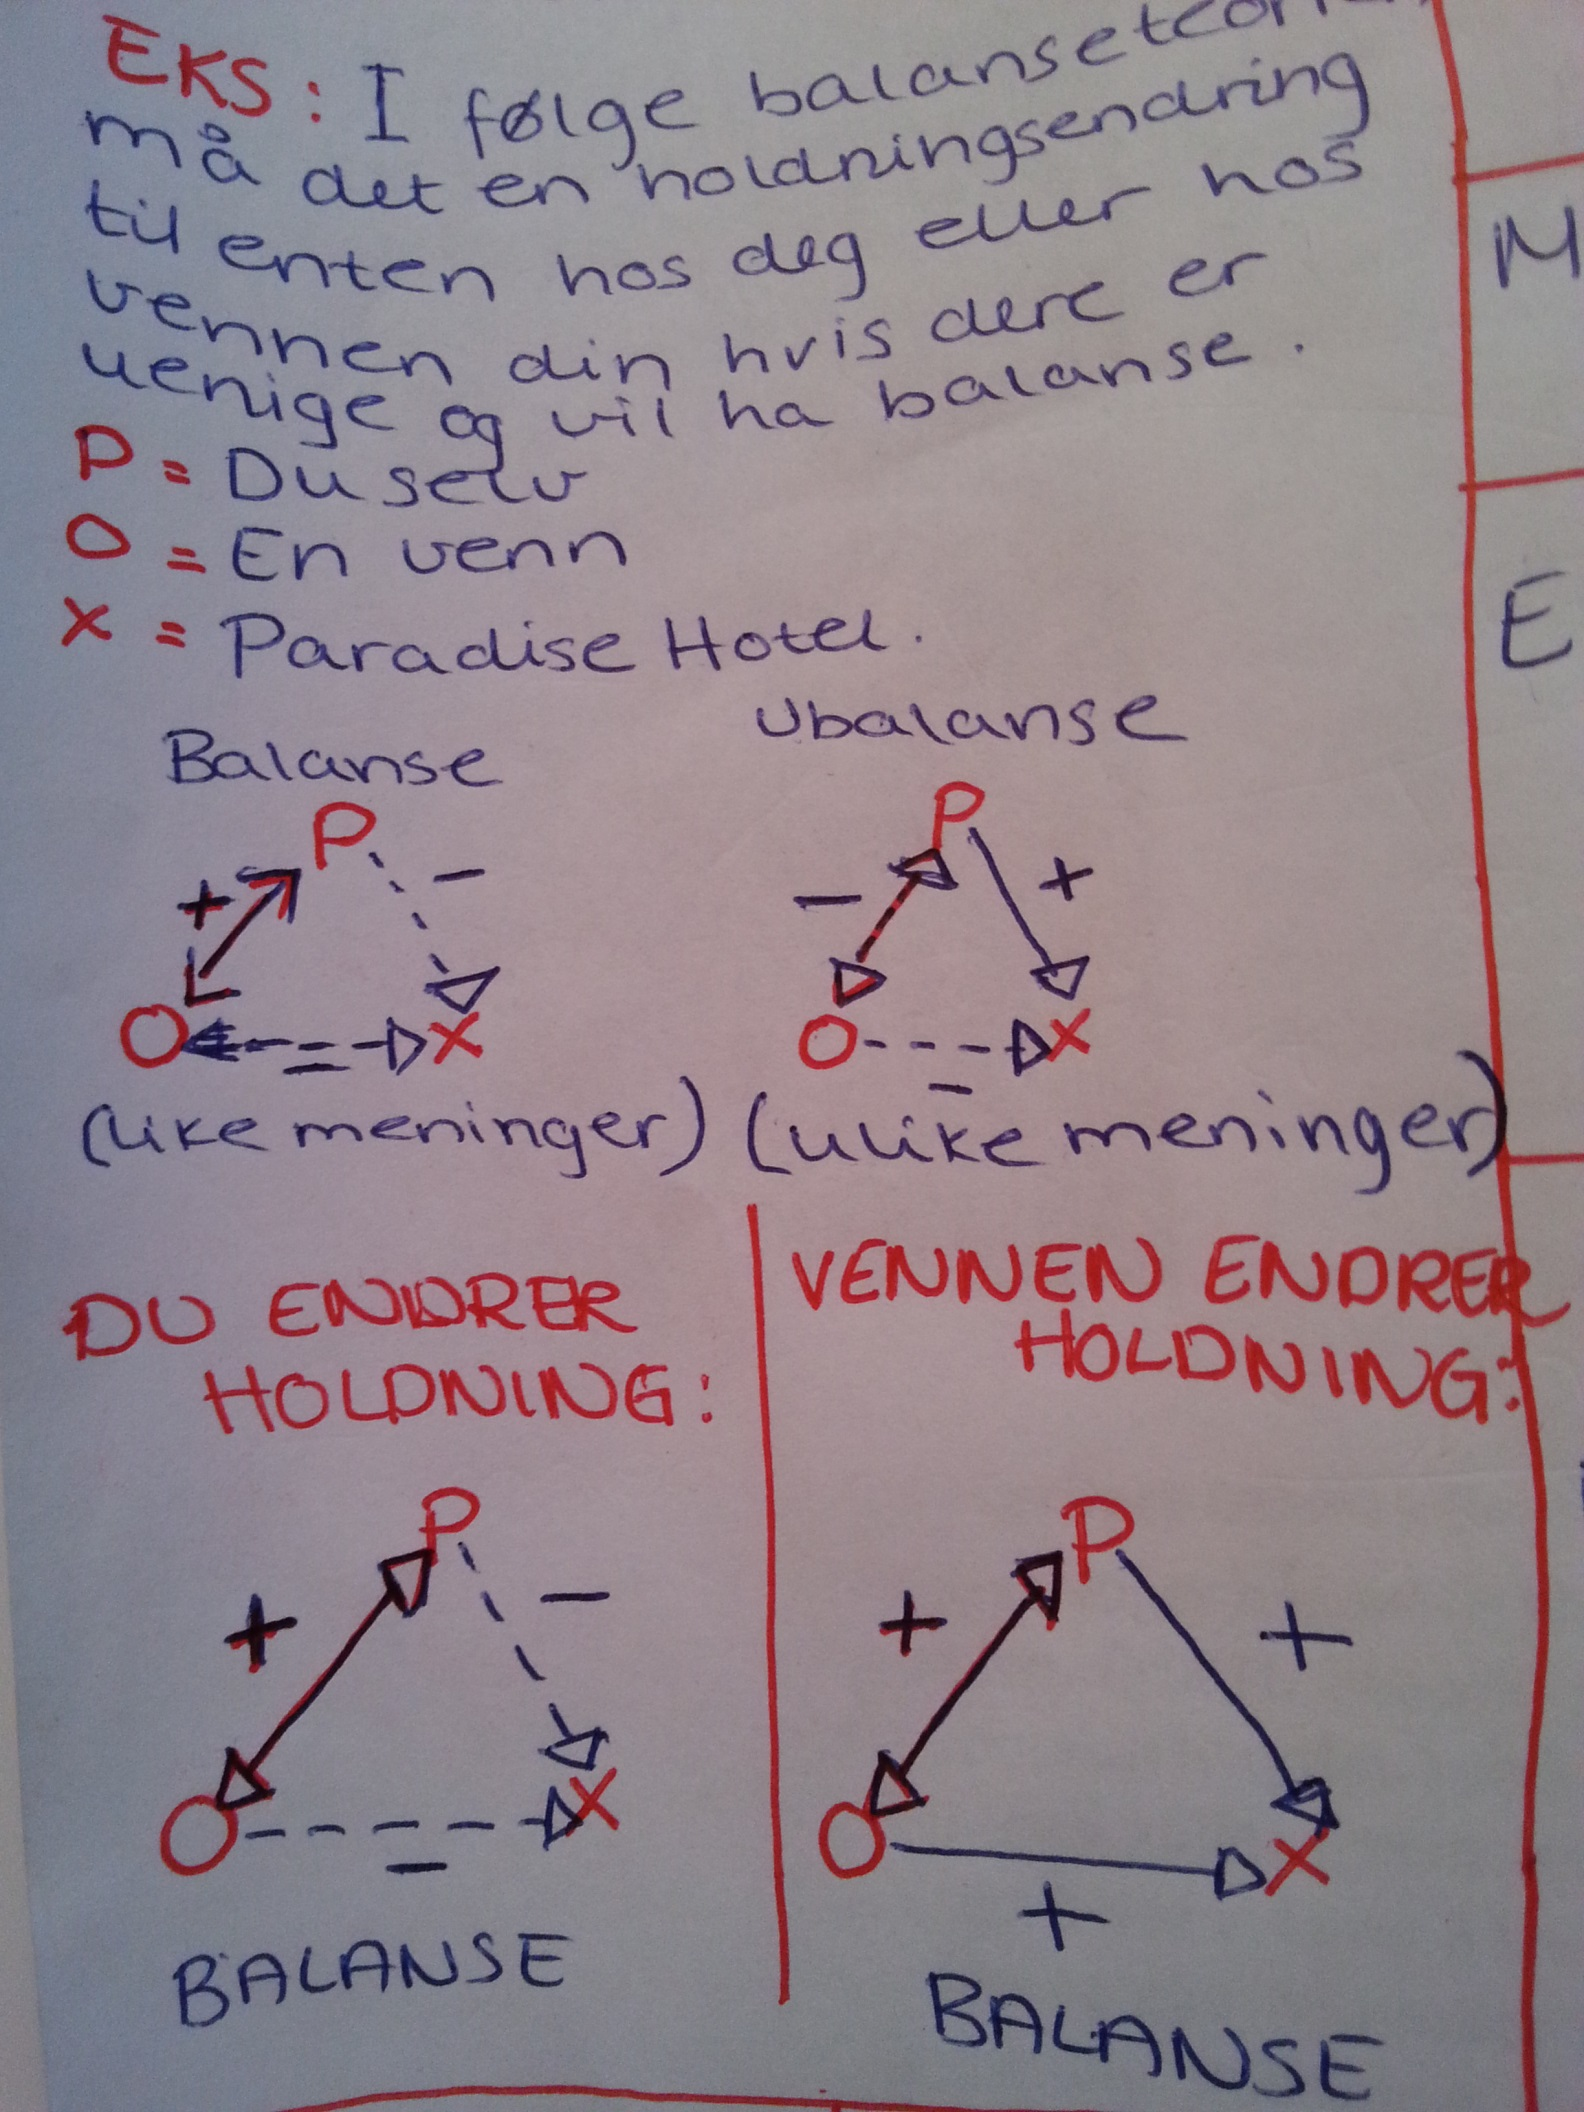 EKS: I følge balanseteorien
må det en holdningsendring
til enten hos deg eller hos
vennen din hvis dere er
uenige og vil ha balanse.
P = Du selv
O = En venn
X = Paradise Hotel.
Balanse
Ubalanse
P
+
-
O
X
-
P
-
+
O
X
-
(like meninger)
(ulike meninger)
DU ENDRER
HOLDNING:
VENNEN ENDRER
HOLDNING:
P
+
-
O
X
-
BALANSE
P
+
+
O
X
+
BALANSE
M
E